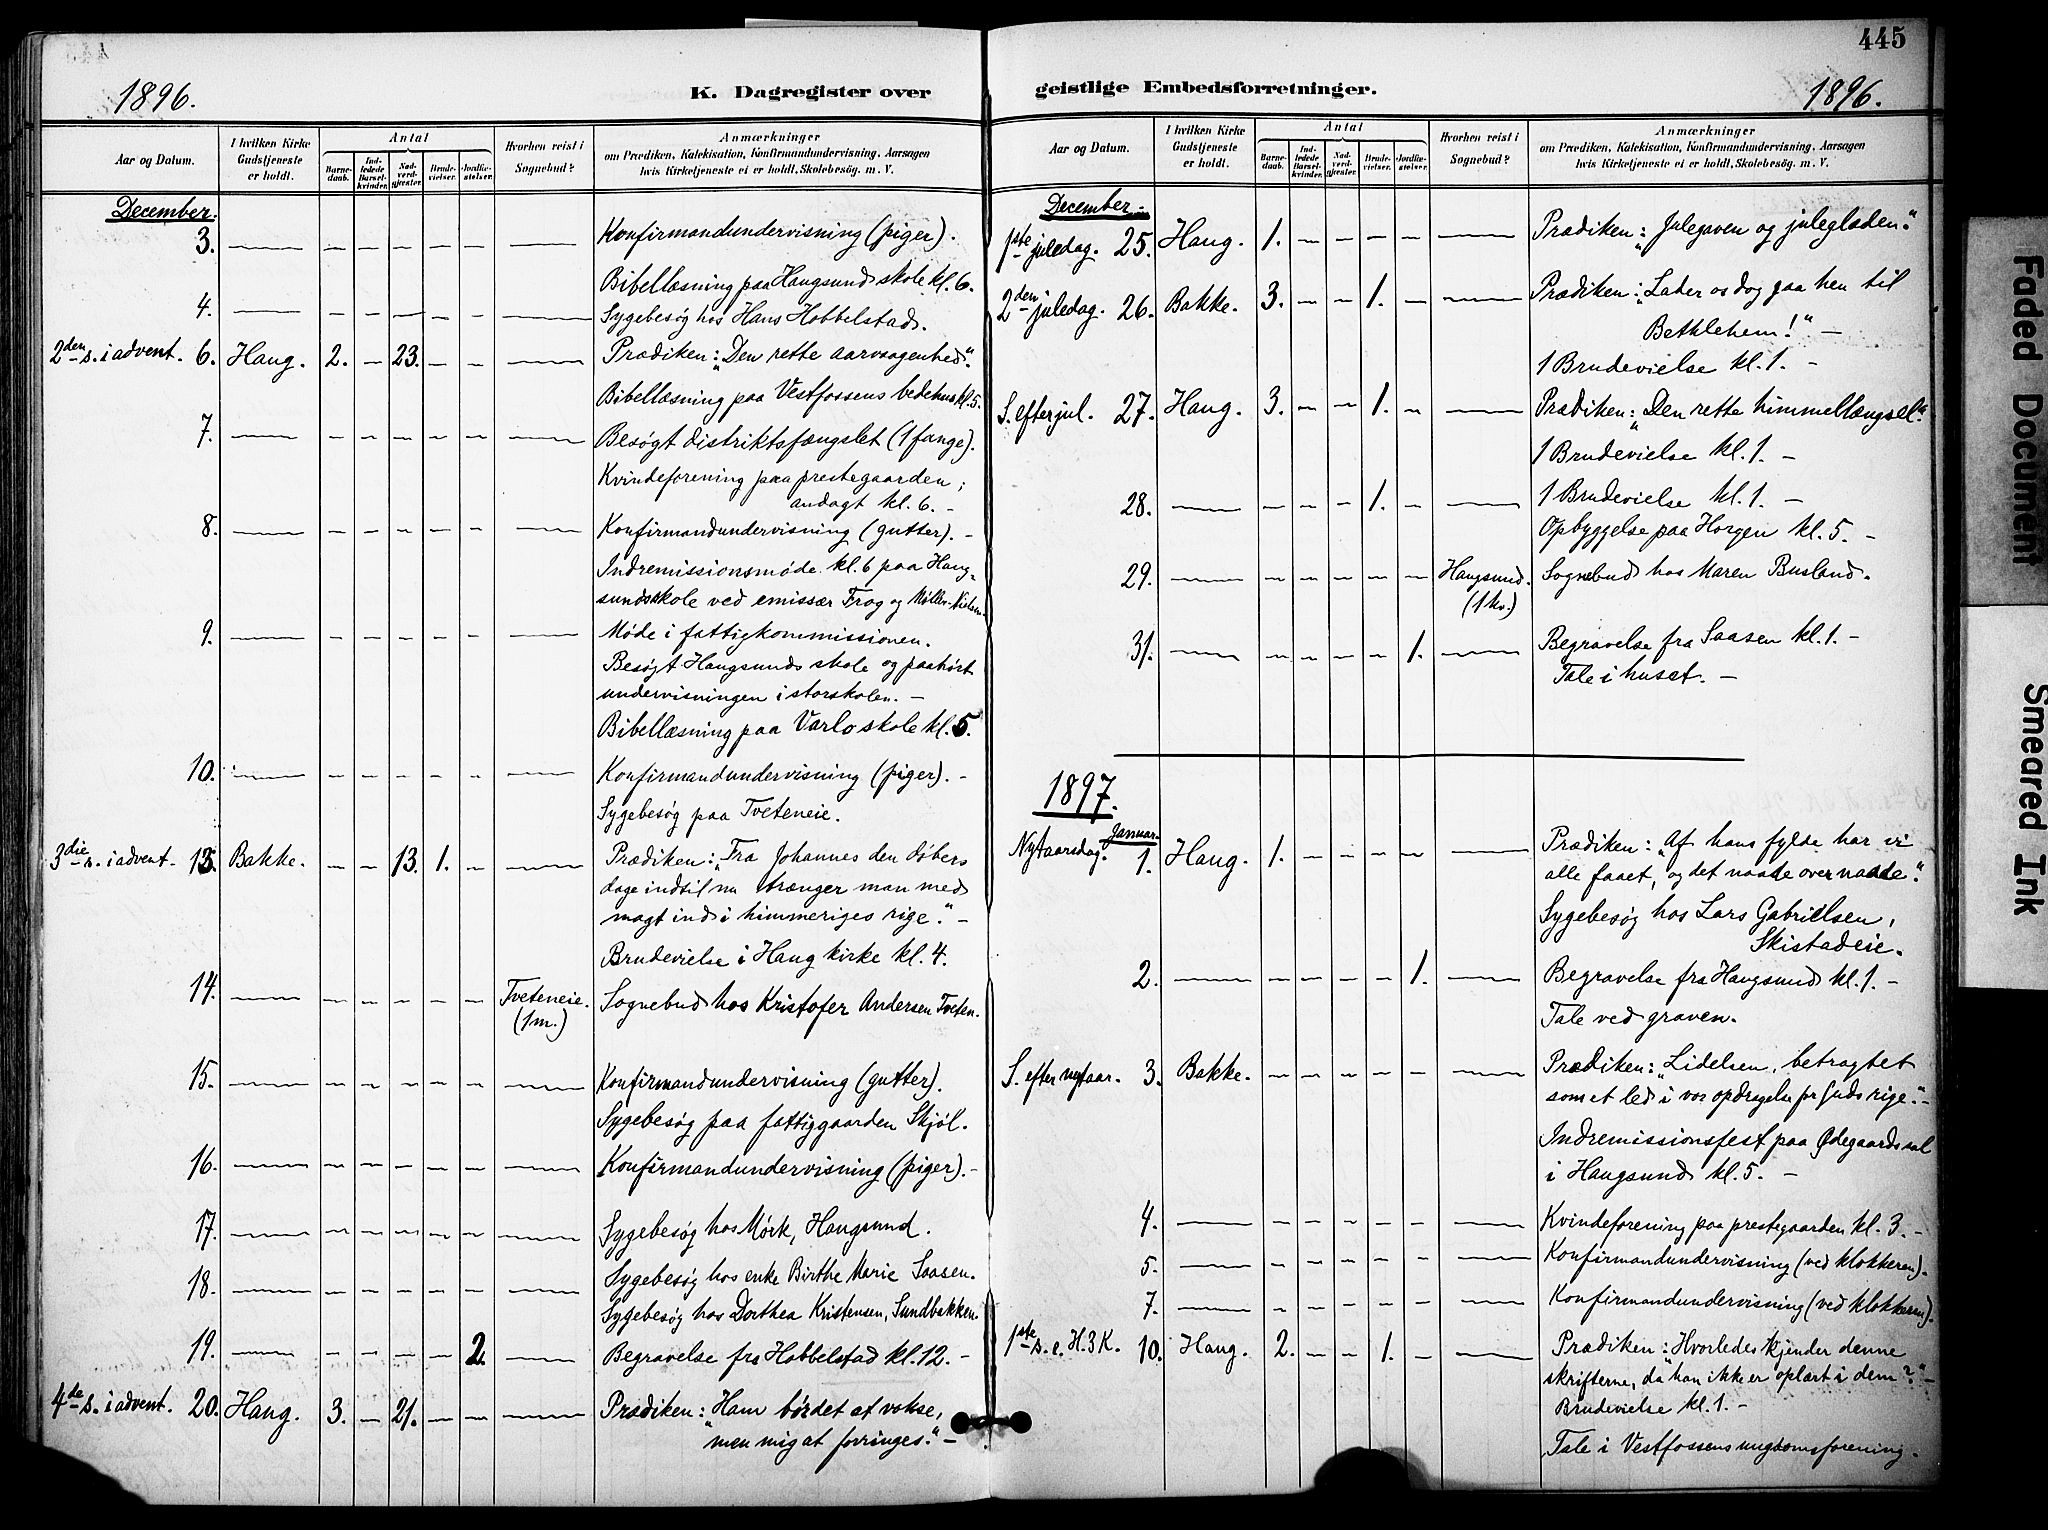 445
1896.
K. Dagregister over
geistlige Embedsforretninger.
1896.
Aar og Datum.
I hvilken Kirke Gudstjeneste er holdt.
Antal
Barnedaab.
Indledede Barselkvinder.
Nadverdgjester.
Brudevielser.
Jordfæstelser.
Hvorhen reist i Sognebud?
Anmærkninger
om Prædiken, Katekisation, Konfirmandundervisning, Aarsagen
hvis Kirketjeneste ei er holdt, Skolebesøg. m. V.
December.
3. Konfirmandundervisning (piger).
Bibellæsning paa Haugsund skole kl. 6.
4. Sygebesøg hos Hans Hobbelstad.
2den s. i advent. 6. Haug. 2. — 23. — — — Prædiken: "Den rette aarvaagenhed".
Bibellæsning paa Vestfossens bedehus kl. 5.
7. Besøgt distriktsfængslet (1 fange).
Kvindeforening paa prestegaarden;
andagt kl. 6. —
8. Konfirmandundervisning (gutter). —
Indremissionsmøde kl. 6 paa Haug-
sundskole ved emissær Frog og Møller-Nielsen.
9. Møde i fattigkommissionen.
Besøgt Haugsunds skole og paahørt
undervisningen i storskolen. —
Bibellæsning paa Varlo skole kl. 5.
10. Konfirmandundervisning (piger). —
Sygebesøg paa Tveteneie.
3die s. i advent. 13. Bakke. — — 13. 1. — — Prædiken: "Fra Johannes den døbers
dage indtil nu trænger man med
magt ind i himmeriges rige." —
Brudevielse i Haug kirke kl. 4.
14. Tveteneie. (1 m.) Sognebud hos Kristofer Andersen Tveten.
15. Konfirmandundervisning (gutter).
Sygebesøg paa fattiggaarden Skjøl.
16. Konfirmandundervisning (piger). —
17. Sygebesøg hos Mørk, Haugsund.
18. Sygebesøg hos enke Birthe Marie Saasen.
Sygebesøg hos Dorthea Kristensen, Sundbakken.
19. 2. Begravelse fra Hobbelstad kl. 12. —
4de s. i advent. 20. Haug. 3. — 21. — — — Prædiken: "Ham bør det at vokse,
men mig at forringes." —
Aar og Datum.
I hvilken Kirke Gudstjeneste er holdt.
Antal
Barnedaab.
Indledede Barselkvinder.
Nadverdgjester.
Brudevielser.
Jordfæstelser.
Hvorhen reist i Sognebud?
Anmærkninger
om Prædiken, Katekisation, Konfirmandundervisning, Aarsagen
hvis Kirketjeneste ei er holdt, Skolebesøg. m. V.
December. —
1ste juledag. 25. Haug. 1. — — — — — Prædiken: "Julegaven og juleglæden."
2den juledag. 26. Bakke. 3. — — 1. — — Prædiken: "Lader os dog gaa hen til
Bethlehem!" —
1 Brudevielse kl. 1. —
S. efter jul. 27. Haug. 3. — — 1. — — Prædiken: "Den rette himmellængsel."
1 Brudevielse kl. 1. —
28. 1. 1 Brudevielse kl. 1. —
Opbyggelse paa Horgen kl. 5. —
29. Haugsund. (1 kv.) Sognebud hos Maren Busland.
31. 1. Begravelse fra Saasen kl. 1. —
Tale i huset. —
1897.
Januar.
Nytaarsdag. 1. Haug. 1. — — — — — Prædiken: "Af hans fylde har vi
alle faaet, og det naade over naade."
Sygebesøg hos Lars Gabrielsen,
Skistadeie.
2. 1. Begravelse fra Haugsund kl. 1. —
Tale ved graven.
S. efter nytaar. 3. Bakke. — — — — — — Prædiken: "Lidelsen, betragtet
som et led i vor opdragelse for Guds rige." —
Indremissionsfest paa Ødegaards sal
i Haugsund kl. 5. —
4. Kvindeforening paa prestegaarden kl. 3. —
5. Konfirmandundervisning (ved klokkeren).
7. Konfirmandundervisning (ved klokkeren).
1ste s. e. H. 3 K. 10. Haug. 2. — — 1. — — Prædiken: "Hvorledes kjender denne
skrifterne, da han ikke er oplært i dem?" —
Brudevielse kl. 1. —
Tale i Vestfossens ungdomsforening.
Faded Document
Smeared Ink